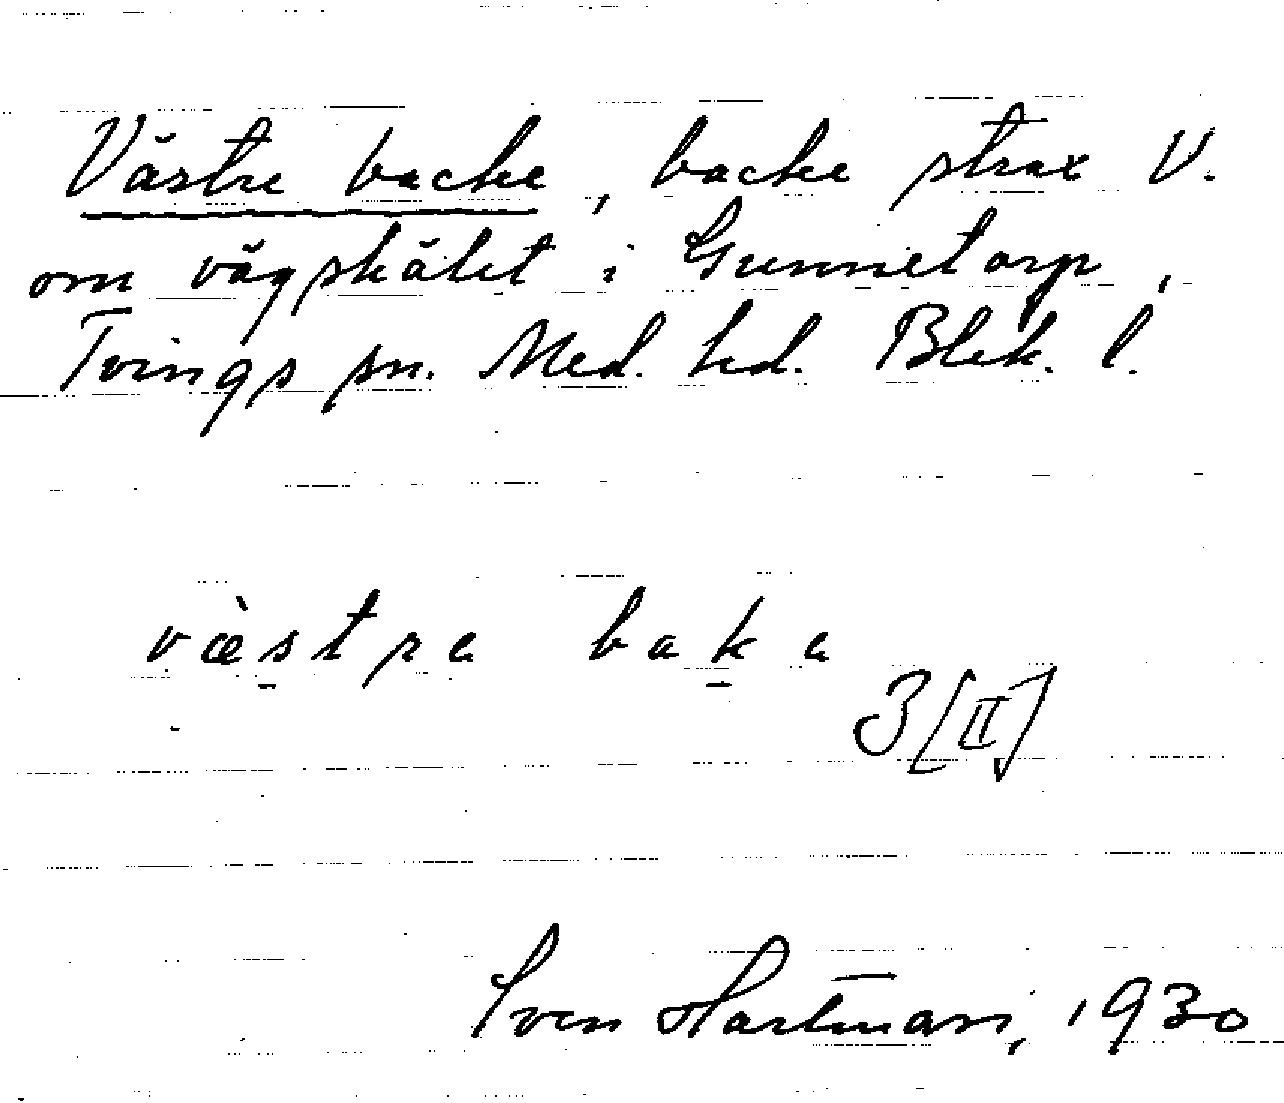 Västre backe, backe strax V.
om vägskälet i Gunnetorp,
Tvings sn. Med. hd. Blek. l.
væ̀stra baka
3[II]
Sven Hartman, 1930